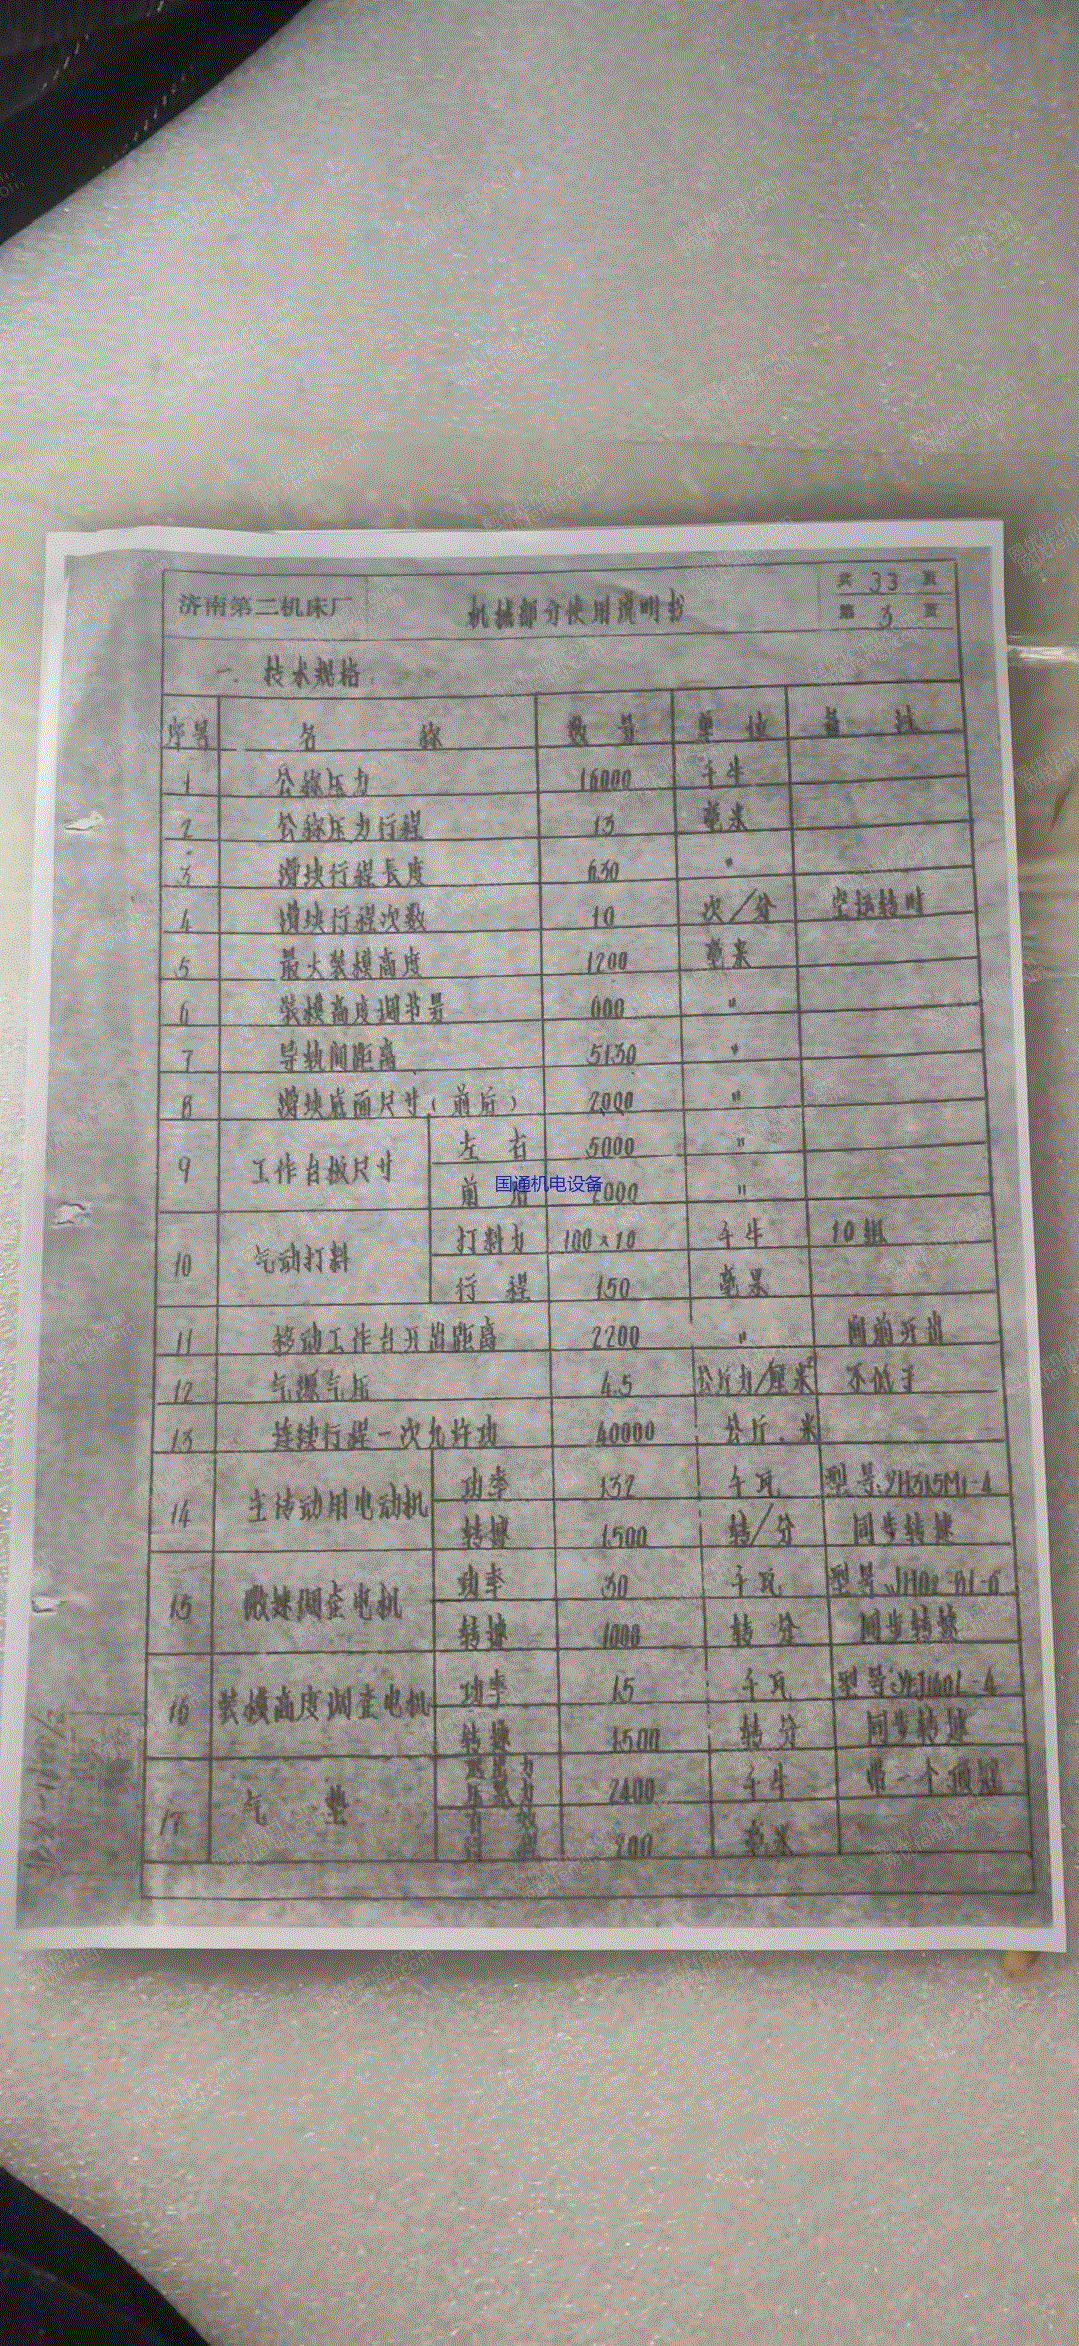 济南第二机床厂 机械部分使用说明书 共 33 页
第 3 页
一. 技术规格
序号 名 称 数 量 单 位 备 注
1 公称压力 16000 千牛
2 公称压力行程 13 毫米
3 滑块行程长度 630 "
4 滑块行程次数 10 次/分 空运转时
5 最大装模高度 1200 毫米
6 装模高度调节量 600 "
7 导轨间距离 5130 "
8 滑块底面尺寸(前后) 2000 "
9 工作台板尺寸 左 右 5000 "
前 后 2000 "
国通机电设备
10 气动打料 打料力 100×10 千牛 10组
行 程 150 毫米
11 移动工作台开出距离 2200 " 向前开出
12 气源气压 4.5 公斤力/厘米² 不低于
13 连续行程一次允许功 40000 公斤.米
14 主传动用电动机 功率 132 千瓦 型号:YH315M1-4
转速 1500 转/分 同步转速
15 微速调整电机 功率 30 千瓦 型号
转速 1000 转 分 同步转速
16 装模高度调整电机 功率 15 千瓦 型号
转速 1500 转 分 同步转速
17 气 垫 压紧力 2400 千牛 带一个顶冠
200 毫米